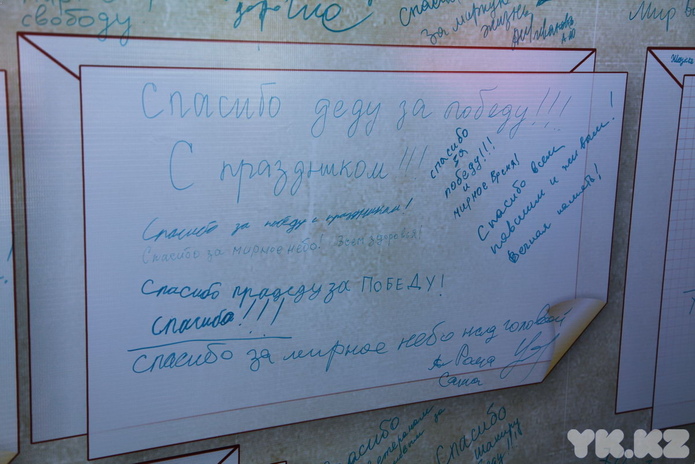 свободу
спасибо
за мирную
жизнь
Мир в
Спасибо деду за победу!!!
С праздником!!!
спасибо
за
победу!!!
и
мирное время!
Спасибо всем
павшим и живым!
Вечная память!
Спасибо за победу с праздником!
Спасибо за мирное небо! Всем здоровья!
Спасибо прадеду за ПОБЕДУ!
Спасибо!!!!
спасибо за мирное небо над головой
Рада
Саша
Спасибо
ветеранам
Спасибо
YK.KZ